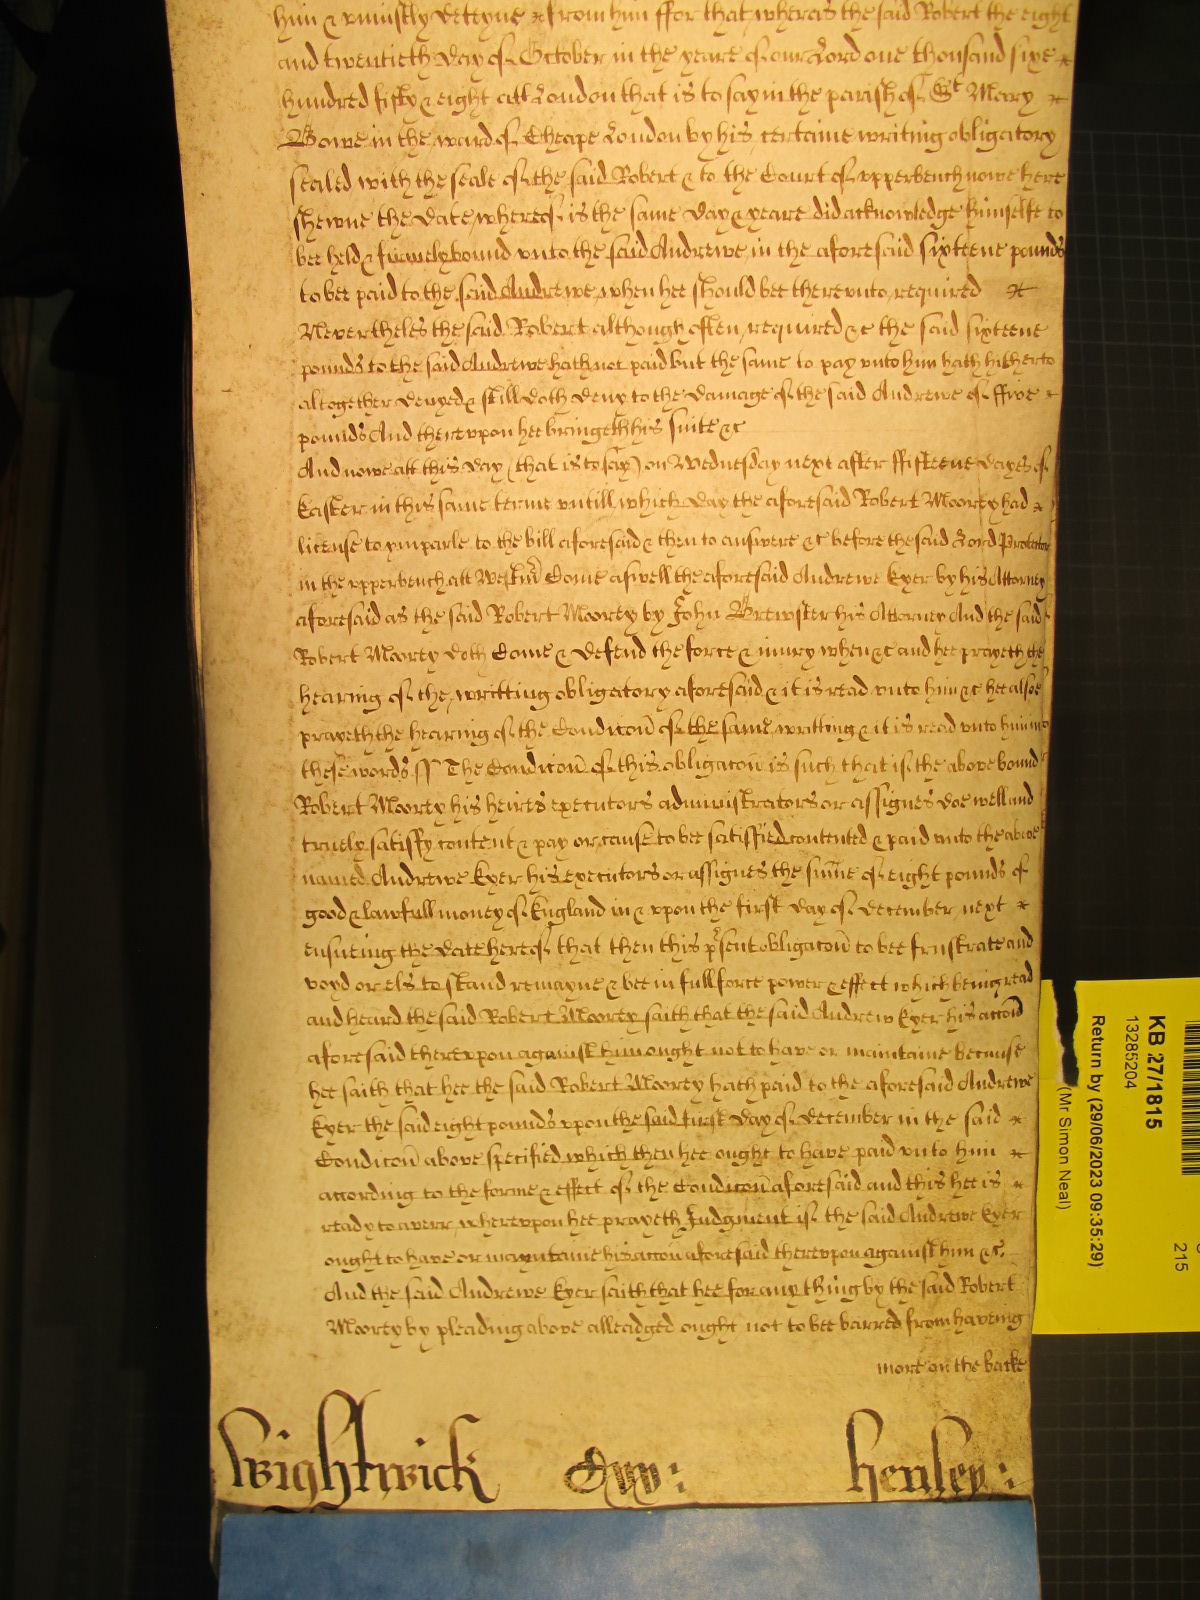 him & uniustly deteyne & from him ffor that whereas the said Robert the eight
and twentieth day of October in the yeare of our Lord one thousand sixe
hundred fifty & eight att London that is to say in the parish of St Mary
Bowe in the ward of Cheape London by his certaine writing obligatory
sealed with the seale of the said Robert & to the Court of upperbench nowe here
shewne the date whereof is the same day & yeare did acknowledge himselfe to
bee held & firmely bound unto the said Andrewe in the aforesaid sixteene pounds
to bee paid to the said Andrewe when hee should bee thereunto required
Neverthelés the said Robert although often required &c the said sixteene
pounds to the said Andrewe hath not paid but the same to pay unto him hath hitherto
altogether denyed & still doth deny to the damage of the said Andrewe of ffive
pounds And thereupon hee bringeth his suite &c
And nowe att this day (that is to say) on Wednesday next after ffifteene dayes of
Easter in this same terme untill which day the aforesaid Robert Moorey had
license to ymparle to the bill aforesaid & then to answere &c before the said Lord Protector
in the upperbench att Westmr Come aswell the aforesaid Andrewe Eyer by his Attorney
aforesaid as the said Robert Moorey by John Brewster his Attorney And the said
Robert Moorey doth Come & defend the force & iniury when &c and hee prayeth the
hearing of the writting obligatory aforesaid & it is read unto him &c hee alsoe
prayeth the hearing of the Condicōn of the same writting & it is read unto him in
these words ss The Condicōn of this obligatōn is such that if the above bound
Robert Moorey his heires executors administrators or assignes doe well and
truely satisfy content & pay or cause to bee satisfied contented & paid unto the above
named Andrewe Eyer his executors or assignes the sum̄e of eight pounds of
good & lawfull money of England in & upon the first day of december next
ensueing the date hereof that then this pˀsent obligatōn to bee frustrate and
voyd or els to stand remayne & bee in full force power & effect which being read
and heard the said Robert Moorey saith that the said Andrew Eyer his accōn
aforesaid thereupon against him ought not to have or maintaine because
hee saith that hee the said Robert Moorey hath paid to the aforesaid Andrewe
Eyer the said eight pounds upon the said first day of december in the said
Condicōn above specified which then hee ought to have paid unto him
according to the forme & effect of the Condicōn aforesaid and this hee is
ready to averr whereupon hee prayeth Judgment if the said Andrewe Eyer
ought to have or mayntaine his accōn aforesaid thereupon against him &c.
And the said Andrewe Eyer saith that hee for any thing by the said Robert
Moorey by pleading above alleadged ought not to bee barred from haveing
more on the backe
Wightwick
Henley:
KB 27/1815
13285204
Return by (29/06/2023 09:35:29)
(Mr Simon Neal)
215